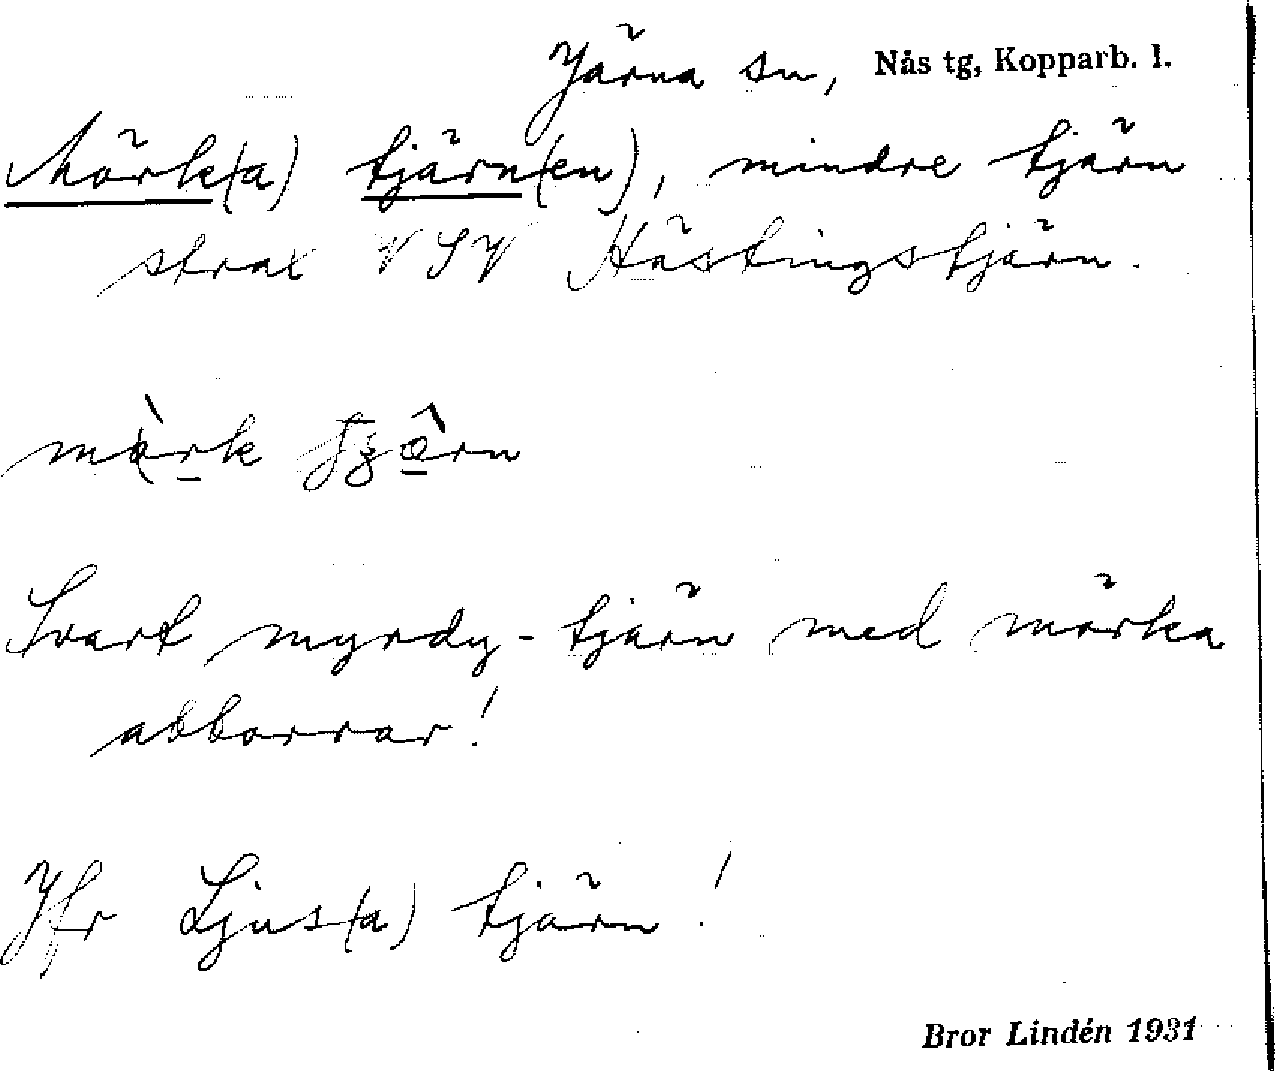 Järna sn, Nås tg, Kopparb. l.
Mörk(a) tjärn(en), mindre tjärn
strax VSV Hästingstjärn.
Svart myrdy-tjärn med mörka
abborrar!
Jfr Ljus(a) tjärn!
Bror Lindén 1931